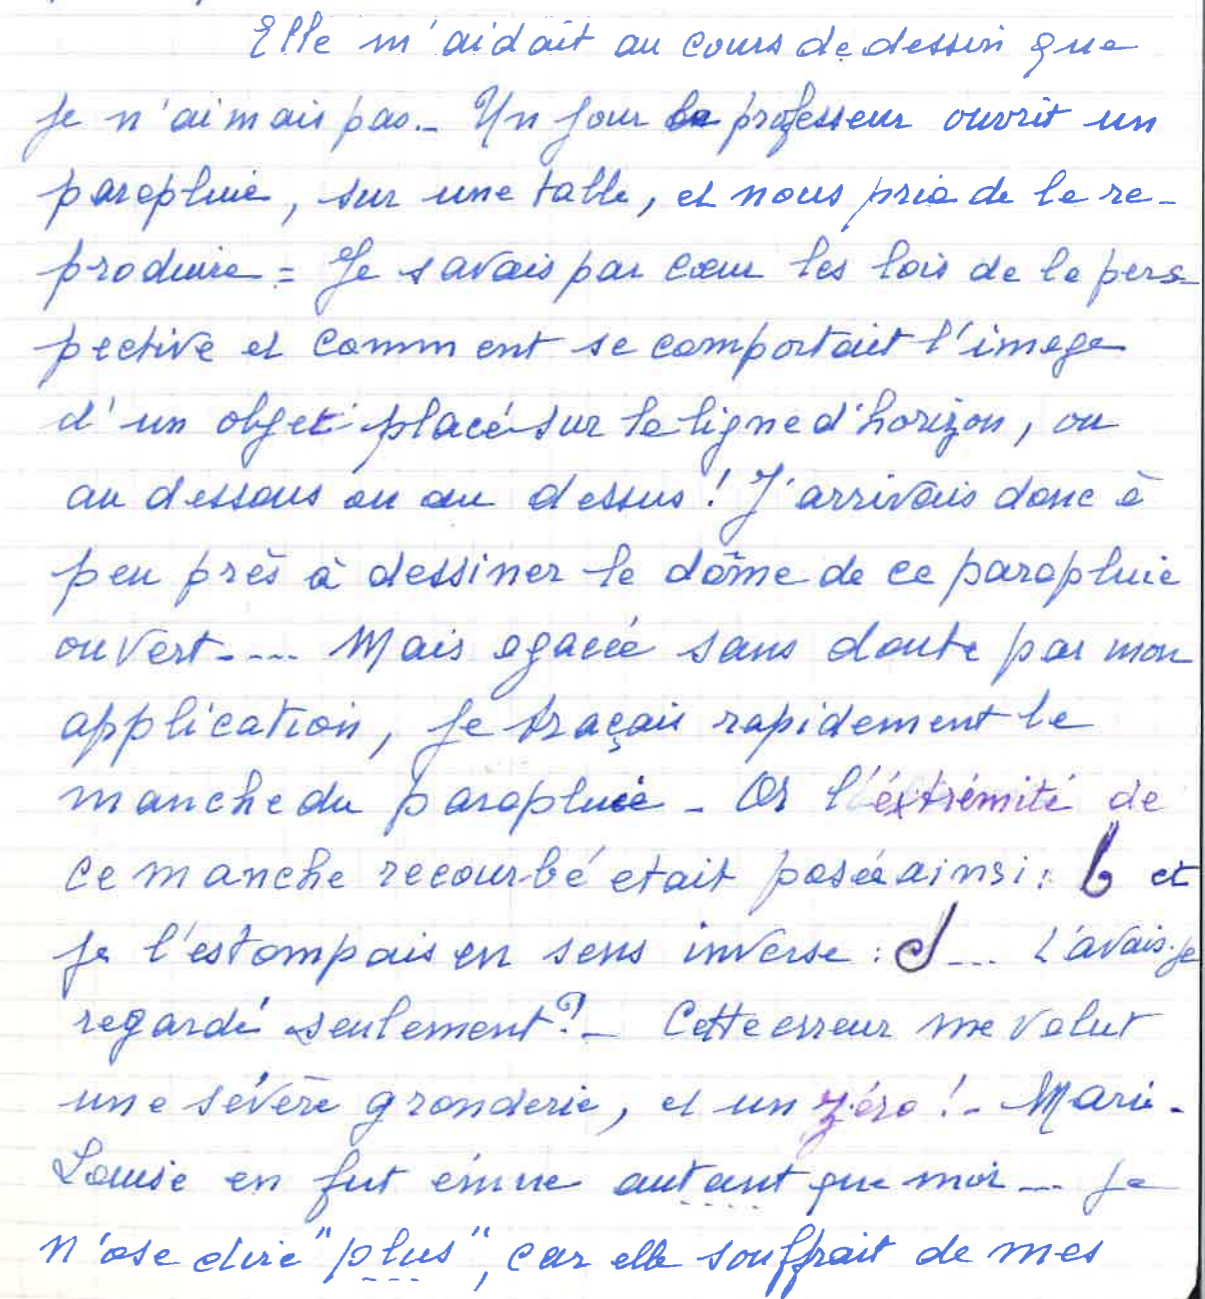 Elle m'aidait au cours de dessin que
je n'aimais pas._ Un jour le professeur ouvrit un
parapluie, sur une table, et nous pria de le re-
produire = Je savais par cœur les lois de la pers-
pective et comment se comportait l'image
d'un objet placé sur la ligne d'horizon, ou
au dessous ou au dessus ! J'arrivais donc à
peu près à dessiner le dôme de ce parapluie
ouvert_.... Mais agacée sans doute par mon
application, je traçais rapidement le
manche du parapluie - Or l'éxtrémité de
ce manche recourbé etait posée ainsi : b et
je l'estompais en sens inverse : d ... L'avais-je
regardé seulement ? _ Cette erreur me valut
une sévère gronderie, et un zéro ! - Marie-
Louise en fut émue autant que moi ... je
n'ose dire "plus", car elle souffrait de mes